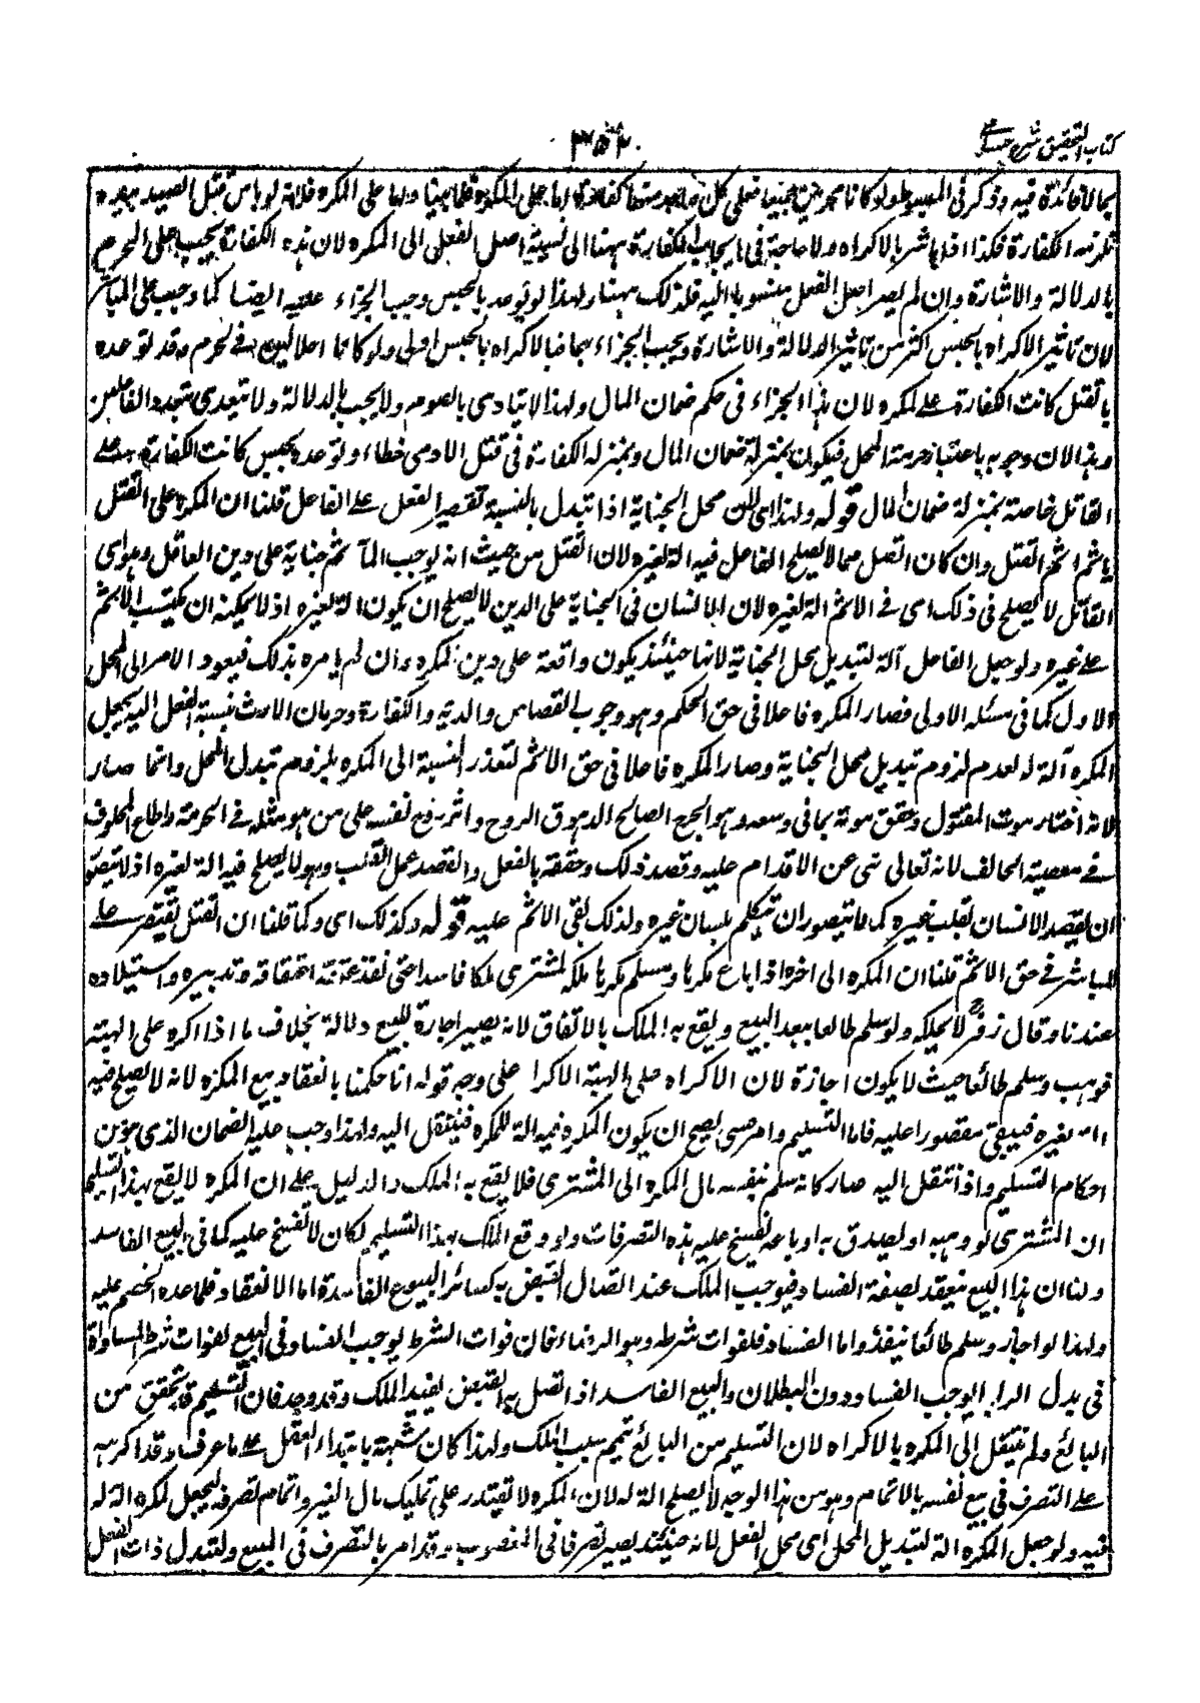 كتاب التحقيق شرح حسامی
۳۵۲
بما لا فائدة فيه وذكر في المبسوط ولو كانا محرمين جميعا فعلى كل واحد منهما كفارة اما على المكره فلما بينا واما على المكره فلانه لو باشر قتل الصيد بيده
تلزمه الكفارة فكذا اذا باشر بالاكراه ولا حاجة في ايجاب الكفارة ههنا الى نسبة اصل الفعل الى المكره لان هذه الكفارة تجب على المحرم
بالدلالة والاشارة وان لم يصر اصل الفعل منسوبا اليه فلذلك ههنا ولهذا لو توعد بالحبس وجب الجزاء عليه ايضا كما وجب على المباشر
لان تاثير الاكراه بالحبس اكثر من تاثير الدلالة والاشارة ويجب الجزاء بهما فبالاكراه بالحبس اولى ولو كانا حلالين في الحرم وقد توعده
بالقتل كانت الكفارة على المكره لان هذا الجزاء في حكم ضمان المال ولهذا لا يتادى بالصوم ولا يجب بالدلالة ولا يتعدد بتعدد الفاعلين
وهذا لان وجوبه باعتبار حرمة المحل فيكون بمنزلة ضمان المال وبمنزلة الكفارة في قتل الادمي خطاء ولو توعده بحبس كانت الكفارة على
القاتل خاصة بمنزلة ضمان المال قوله ولهذا اى لان محل الجناية اذا تبدل بالنسبة تقتصر الفعل على الفاعل قلنا ان المكره على القتل
ياثم اثم القتل وان كان القتل مما لا يصلح الفاعل فيه الة لغيره لان القتل من حيث انه يوجب المآثم جناية على دين العاقل وهو اى
القاتل لا يصلح في ذلك اى في الاثم الة لغيره لان الانسان في الجناية على الدين لا يصلح ان يكون الة لغيره اذ لا يمكنه ان يكتسب الاثم
على غيره ولو جعل الفاعل آلة لتبديل محل الجناية لانها حينئذ يكون واقعة على دين المكره وان لم يامره بذلك فيعود الامر الى المحل
الاول كما في مسئله الاولى فصار المكره فاعلا في حق الحكم وهو وجوب القصاص والدية والكفارة وحرمان الارث بنسبة الفعل اليه بجعل
المكره آلة له لعدم لزوم تبديل محل الجناية وصار المكره فاعلا في حق الاثم لتعذر النسبة الى المكره بلزوم تبدل المحل وانما صار
لانه اختار موت المقتول وحقق موته بما في وسعه وهو الجرح الصالح الزهوق الروح واثر روح نفسه على من هو مثله في الحرمة واطاع المخلوق
في معصية الخالق لانه تعالى نهى عن الاقدام عليه وقصد ذلك وحققه بالفعل والقصد عمل القلب وهو لا يصلح فيه الة لغيره اذ لا يتصور
ان يقصد الانسان بقلب غيره كما لا يتصور ان يتكلم بلسان غيره ولذلك بقى الاثم عليه قوله وكذلك اى وكما قلنا ان القتل يقتصر على
المباشر في حق الاثم قلنا ان المكره الى اخره اذا باع مكرها وسلم مكرها ملكه المشترى ملكا فاسدا حتى نفذ عتقه اعتاقه وتدبيره واستيلاده
عندنا وقال زفر لا يملكه ولو سلم طائعا بعد البيع ويقع به الملك بالاتفاق لانه يصير اجازة للبيع دلالة بخلاف ما اذا اكره على الهبة
فوهب وسلم طائعا حيث لا يكون اجازة لان الاكراه على الهبة الاكرا على وجه قوله انا حكمنا بانعقاد بيع المكره لانه لا يصلح فيه
الة لغيره فيبقى مقصورا عليه فاما التسليم وامر حسى يصح ان يكون المكره فيه الة للمكره فينتقل اليه ولهذا وجب عليه الضمان الذي هو من
احكام التسليم واذا انتقل اليه صار كانه سلم بنفسه مال المكره الى المشترى فلا يقع به الملك والدليل على ان المكره لا يقع بهذا التسليم
ان المشترى لو وهبه او تصدق به او باعه تفسخ عليه هذه التصرفات ولو وقع الملك بهذا التسليم لكان لا تفسخ عليه كما في البيع الفاسد
ولنا ان هذا البيع ينعقد لصفة الفساد فيوجب الملك عند اتصال القبض به كسائر البيوع الفاسدة اما الانعقاد فلما عده الخصم عليه
ولهذا لو اجاز وسلم طائعا ينفذ واما الفساد فلفوات شرطه وهو الرضاء فان فوات الشرط يوجب الفساد في البيع لفوات شرط المساواة
في بدل الربا يوجب الفساد دون البطلان والبيع الفاسد اذا اتصل به القبض يفيد الملك وقد وجد فان التسليم قد تحقق من
البائع ولم ينتقل الى المكره بالاكراه لان التسليم من البائع تتميم سبب الملك ولهذا كان شبهة بابتداء العقل على ما عرف وقد اكرهه
على التصرف في بيع نفسه بالاتمام وهو من هذا الوجه لا يصلح الة له لان المكره لا يقتدر على تمليك مال الغير واتمام تصرفه ليجعل المكره الة له
فيه ولو جعل المكره الة لتبديل المحل اى محل الفعل لانه حينئذ يصير تصرفا في المغصوب وقد امر بالتصرف في المبيع ولتبدل ذات الفعل